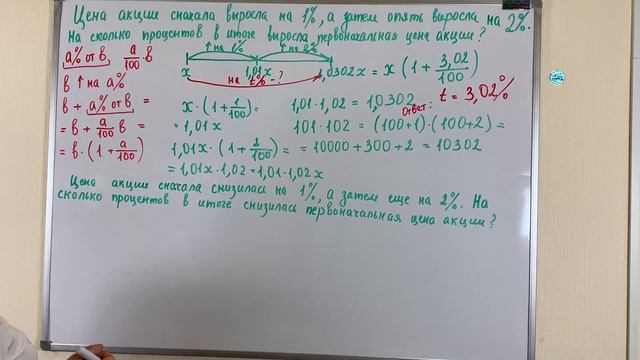 Цена акции сначала выросла на 1%, а затем опять выросла на 2%.
На сколько процентов в итоге выросла первоначальная цена акции?
a% от b, a/100 · b
↑ на 1% ↑ на 2%
x 1,01x 1,0302x = x(1 + 3,02/100)
на t% - ?
b ↑ на a%
b + a% от b =
= b + a/100 b =
= b · (1 + a/100)
x · (1 + 1/100) =
= 1,01x
1,01x · (1 + 2/100) =
= 1,01x · 1,02 = 1,01 · 1,02x
Ответ: t = 3,02%
1,01 · 1,02 = 1,0302
101 · 102 = (100+1) · (100+2) =
= 10000 + 300 + 2 = 10302
Цена акции сначала снизилась на 1%, а затем еще на 2%. На
сколько процентов в итоге снизилась первоначальная цена акции?